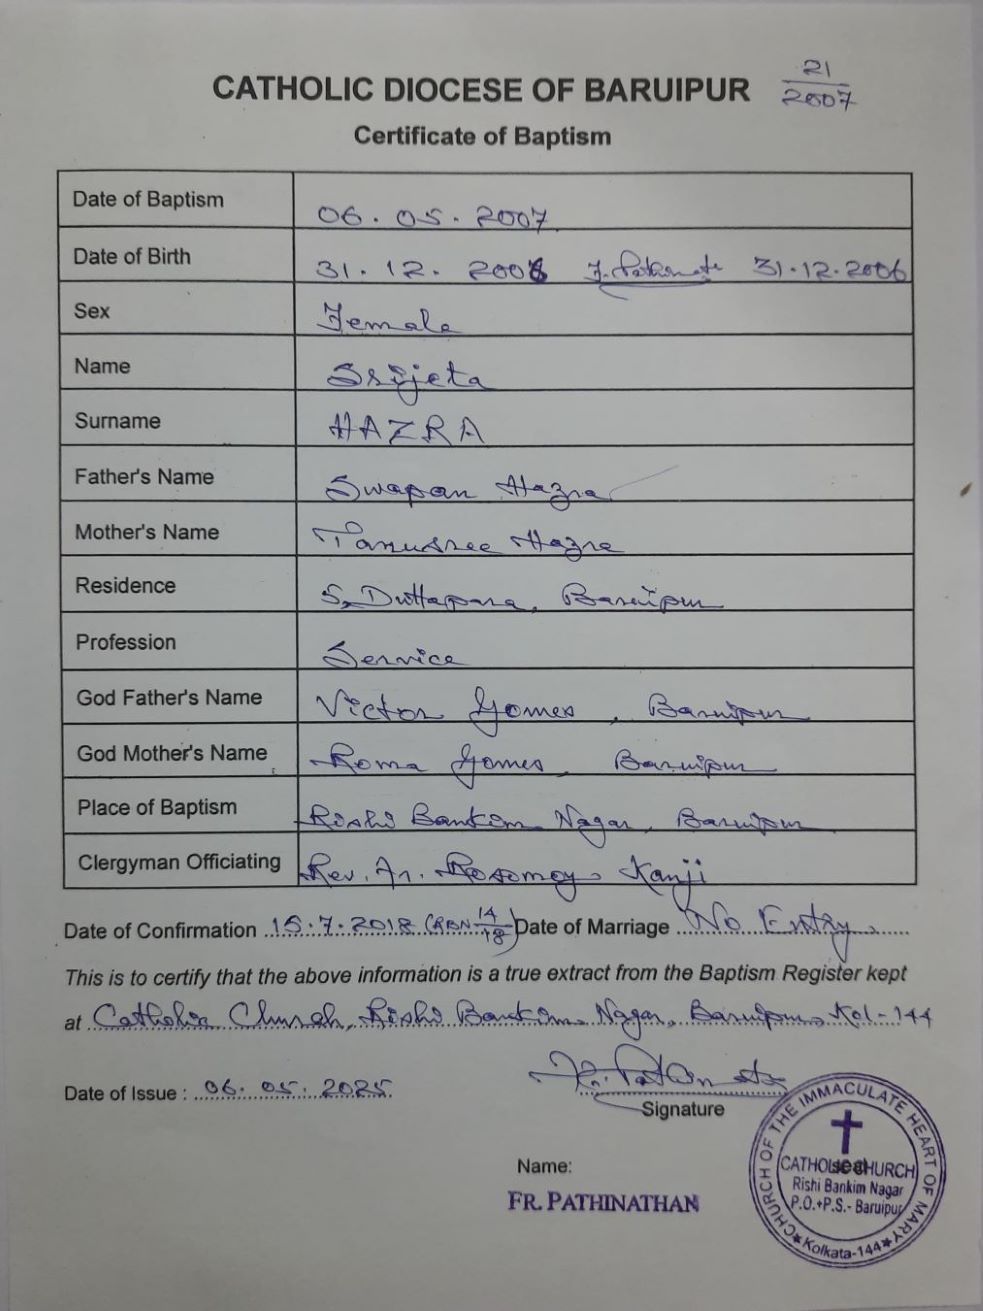 21
2007
CATHOLIC DIOCESE OF BARUIPUR
Certificate of Baptism
Date of Baptism 06.05.2007
Date of Birth 31.12.2006 31.12.2006
Sex Female
Name Srijeta
Surname HAZRA
Father's Name Swapan Hazra
Mother's Name Tanusree Hazra
Residence S. Duttapara, Baruipur
Profession Service
God Father's Name Victor Gomes, Baruipur
God Mother's Name Roma Gomes, Baruipur
Place of Baptism Rishi Bankim Nagar, Baruipur
Clergyman Officiating Rev. Fr. Rosomoy Kanji
Date of Confirmation 15.7.2018 (RBN 14/18) Date of Marriage No Entry.
This is to certify that the above information is a true extract from the Baptism Register kept
at Catholic Church, Rishi Bankim Nagar, Baruipur, Kol-144
Date of Issue : 06.05.2025
Signature
Name:
FR. PATHINATHAN
CHURCH OF THE IMMACULATE HEART OF MARY
CATHOLIC CHURCH
seal
Rishi Bankim Nagar
P.O.+P.S.- Baruipur
★ Kolkata-144 ★